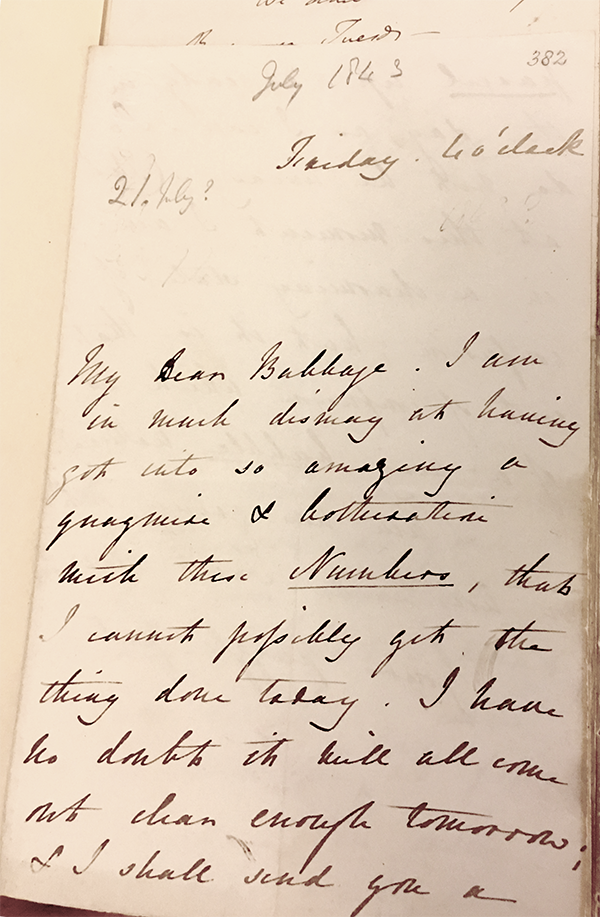 Tuesd
July 1843
382
Friday. 4 o'clock
21. July?
My Dear Babbage. I am
in much dismay at having
got into so amazing a
quagmire & botheration
with these Numbers, that
I cannot possibly get the
thing done today. I have
no doubt it will all come
out clear enough tomorrow;
& I shall send you a